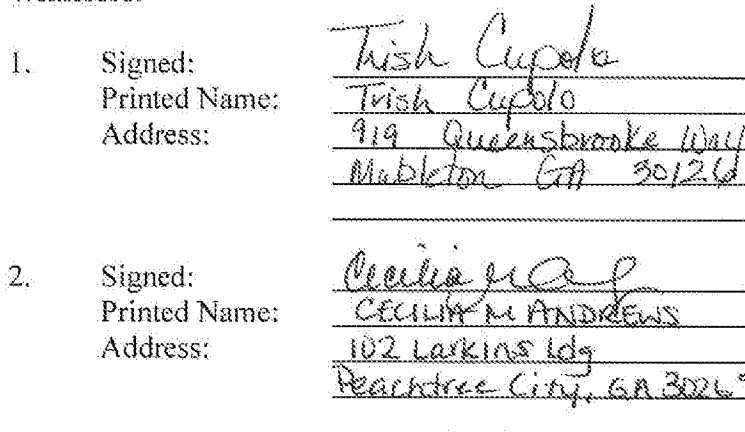 1. Signed: Trish Cupolo
Printed Name: Trish Cupolo
Address: 919 Queensbrooke Way
Mableton GA 30126
2. Signed: Cecilia M
Printed Name: CECILIA M ANDREWS
Address: 102 Larkins Ldg
Peachtree City, GA 3026